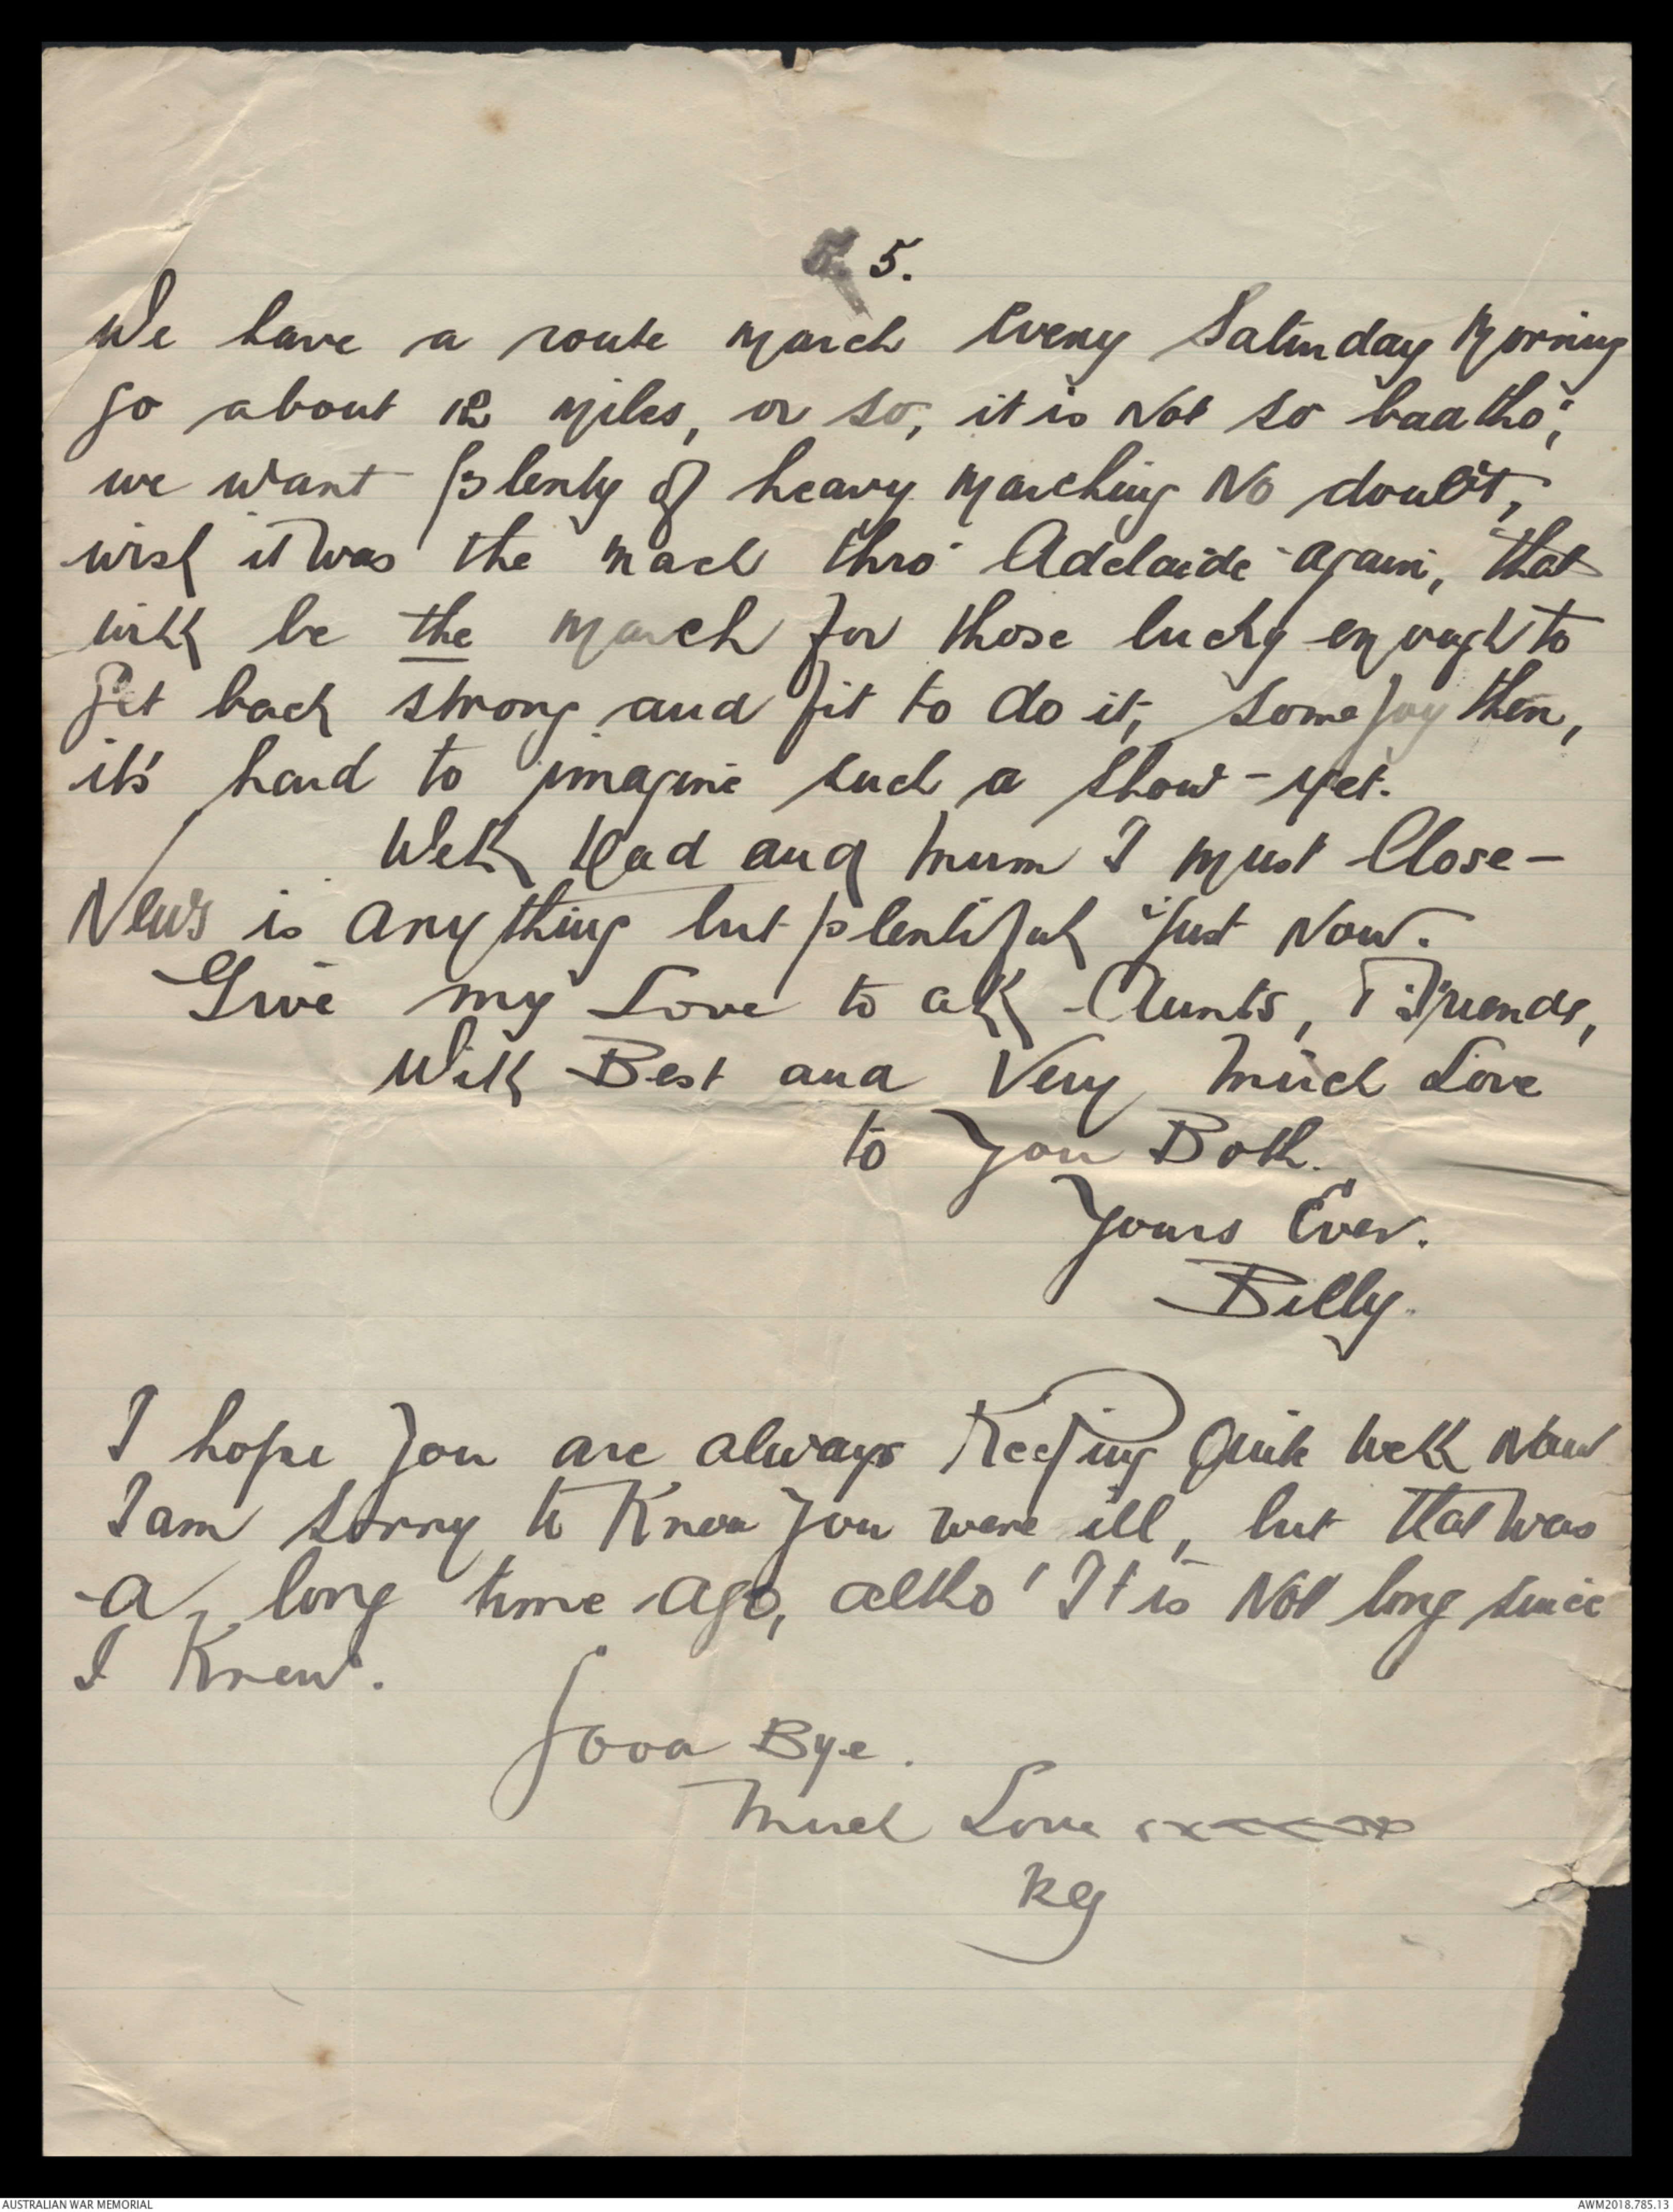 5.
We have a route march every Saturday Morning
go about 12 miles, or so, it is Not so bad tho',
we want plenty of heavy marching No doubt,
wish it was the mach thro' Adelaide again, that
will be the march for those lucky enough to
get back strong and fit to do it, some joy then,
it's hard to imagine such a show - yet.
Well Dad and Mum I must Close -
News is anything but plentiful just Now.
Give my Love to all Aunts, Friends,
With Best and Very Much Love
to You Both.
Yours Ever.
Billy.
I hope you are always Keeping Quite well Now
I am sorry to Know you were ill, but that was
a long time ago, altho' It is Not long since
I Knew.
Good Bye.
Much Love
AUSTRALIAN WAR MEMORIAL
AWM2018.785.13